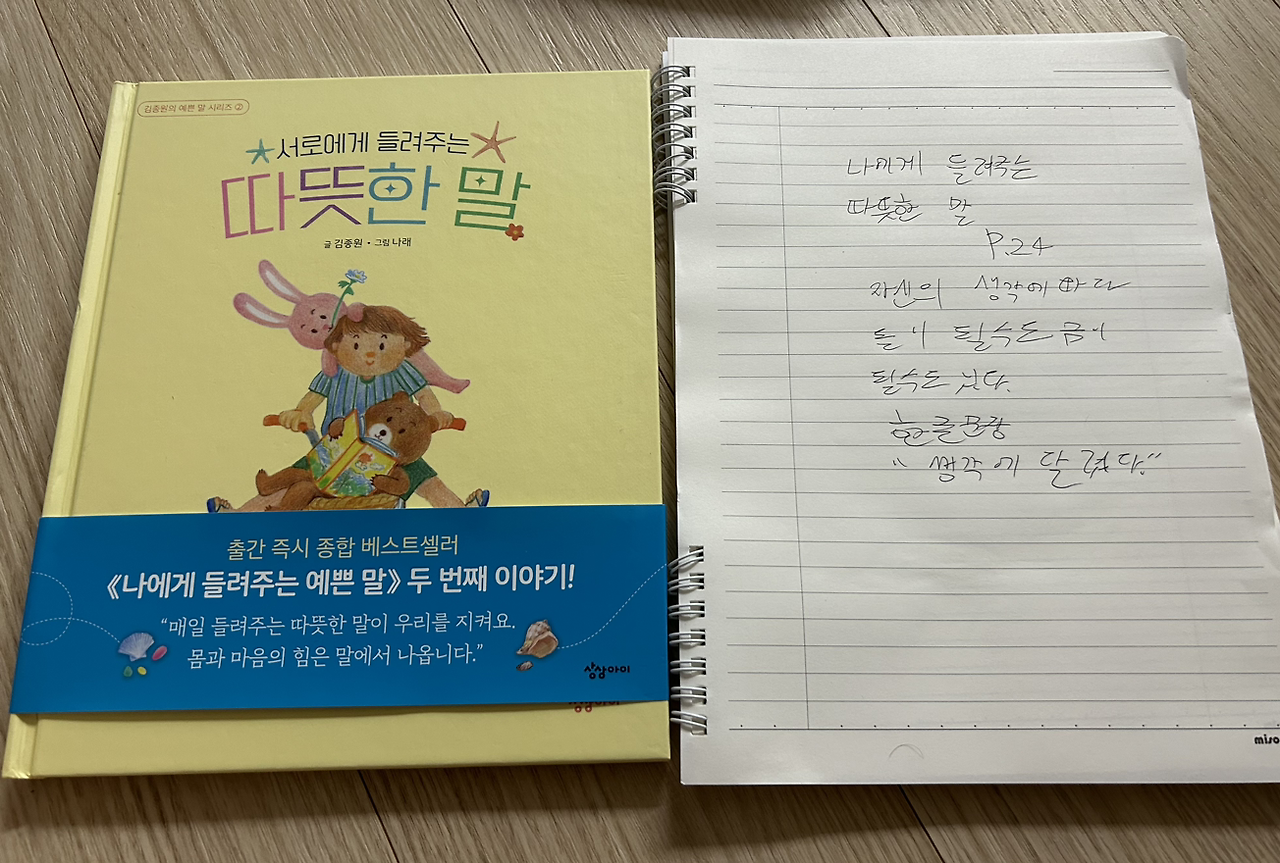 김종원의 예쁜 말 시리즈 ②
서로에게 들려주는
따뜻한 말
글 김종원 · 그림 나래
출간 즉시 종합 베스트셀러
《나에게 들려주는 예쁜 말》 두 번째 이야기!
“매일 들려주는 따뜻한 말이 우리를 지켜요.
몸과 마음의 힘은 말에서 나옵니다.”
상상아이
상상아이
나에게 들려주는
따뜻한 말
P.24
자신의 생각에 따라
돌이 될수도 금이
될수도 있다.
한글문장
“생각에 달렸다.”
miso